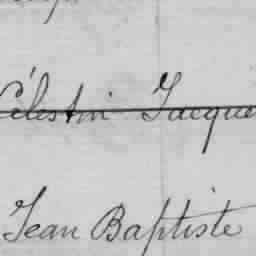 Célestin Jacque
Jean Baptiste